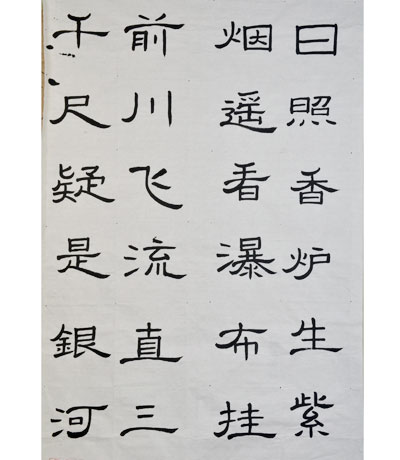 日照香炉生紫
烟遥看瀑布挂
前川飞流直三
千尺疑是銀河